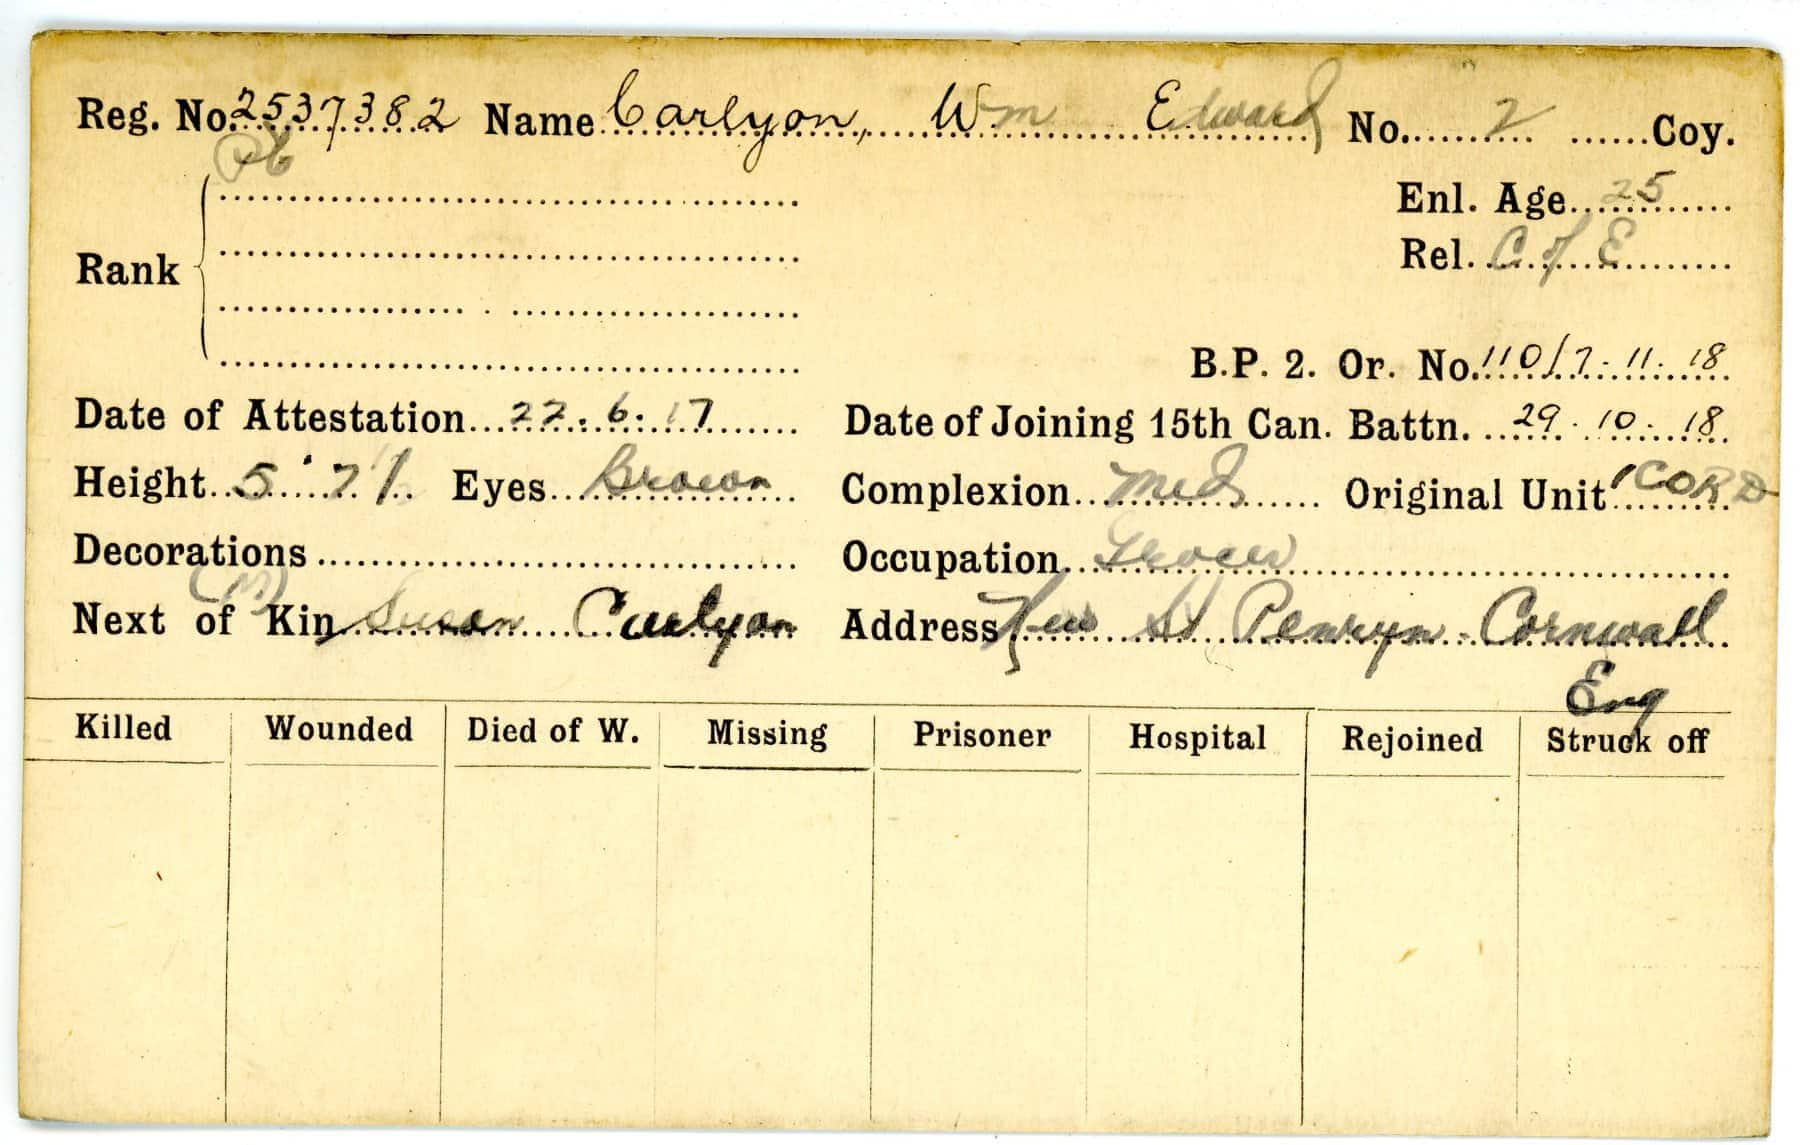 Reg. No. 2537382 Name Carlyon, Wm Edward No. 2 Coy.
Enl. Age 25
Rank
Rel. C of E
B.P. 2. Or. No. 110/7-11-18
Date of Attestation 22.6.17 Date of Joining 15th Can. Battn. 29.10.18
Height 5' 7 Eyes Brown Complexion Med Original Unit 1CORD
Decorations Occupation Grocer
(M)
Next of Kin Susan Carlyon Address New St Penryn Cornwall
Eng
Killed Wounded Died of W. Missing Prisoner Hospital Rejoined Struck off